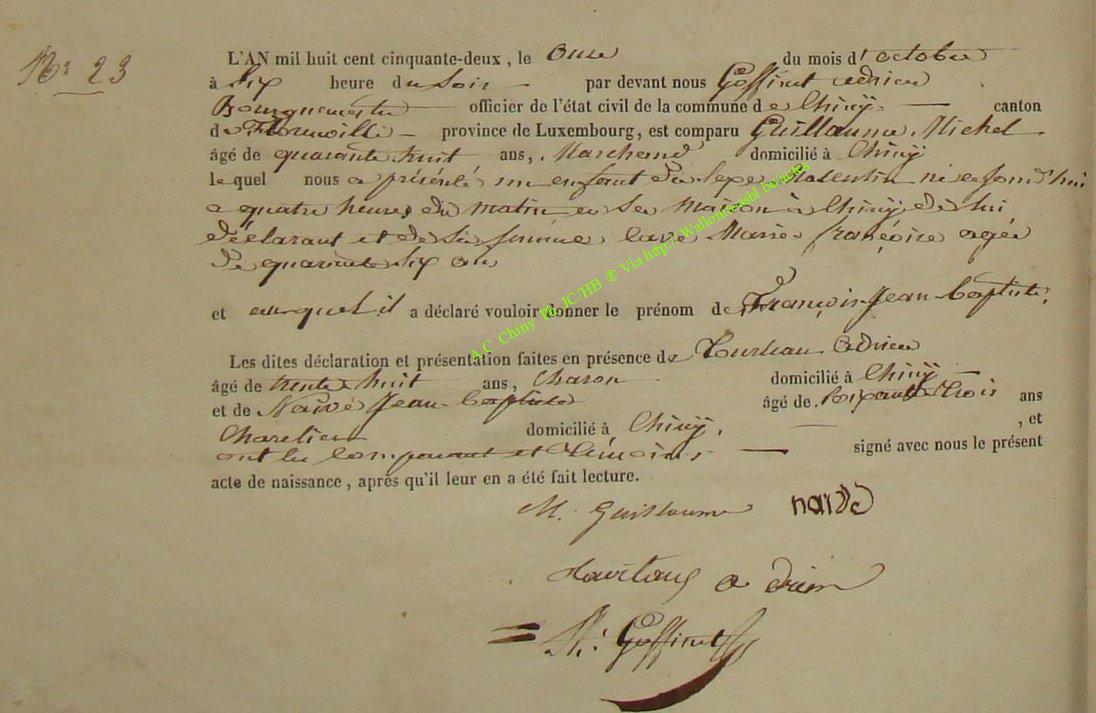 N° 23
L'AN mil huit cent cinquante-deux, le onze du mois d'octobre
à Six heure du Soir par devant nous Goffinet Adrien
Bourguemestre officier de l'état civil de la commune de Chiny canton
de Florenville province de Luxembourg, est comparu Guillaume Michel
âgé de quarante huit ans, Marchand domicilié à Chiny
le quel nous a présenté un enfant du Sexe Masculin né ce jourd'hui
a quatre heures du matin en Sa Maison à Chiny de lui
déclarant et de Sa femme Marie françoise agée
de quarante Six ans
et auquel il a déclaré vouloir donner le prénom de François Jean-Baptiste,
Les dites déclaration et présentation faites en présence de Adrien
âgé de trente huit ans, Charon domicilié à Chiny
et de Naivé Jean-Baptiste âgé de Soixante Trois ans
Charetier domicilié à Chiny, , et
ont les Comparant et Témoins signé avec nous le présent
acte de naissance, après qu'il leur en a été fait lecture.
M. Guillaume
adrien
Goffinet
A.C. Chiny Ph. JC/HB ® Via http://Wallonie asbl benelux